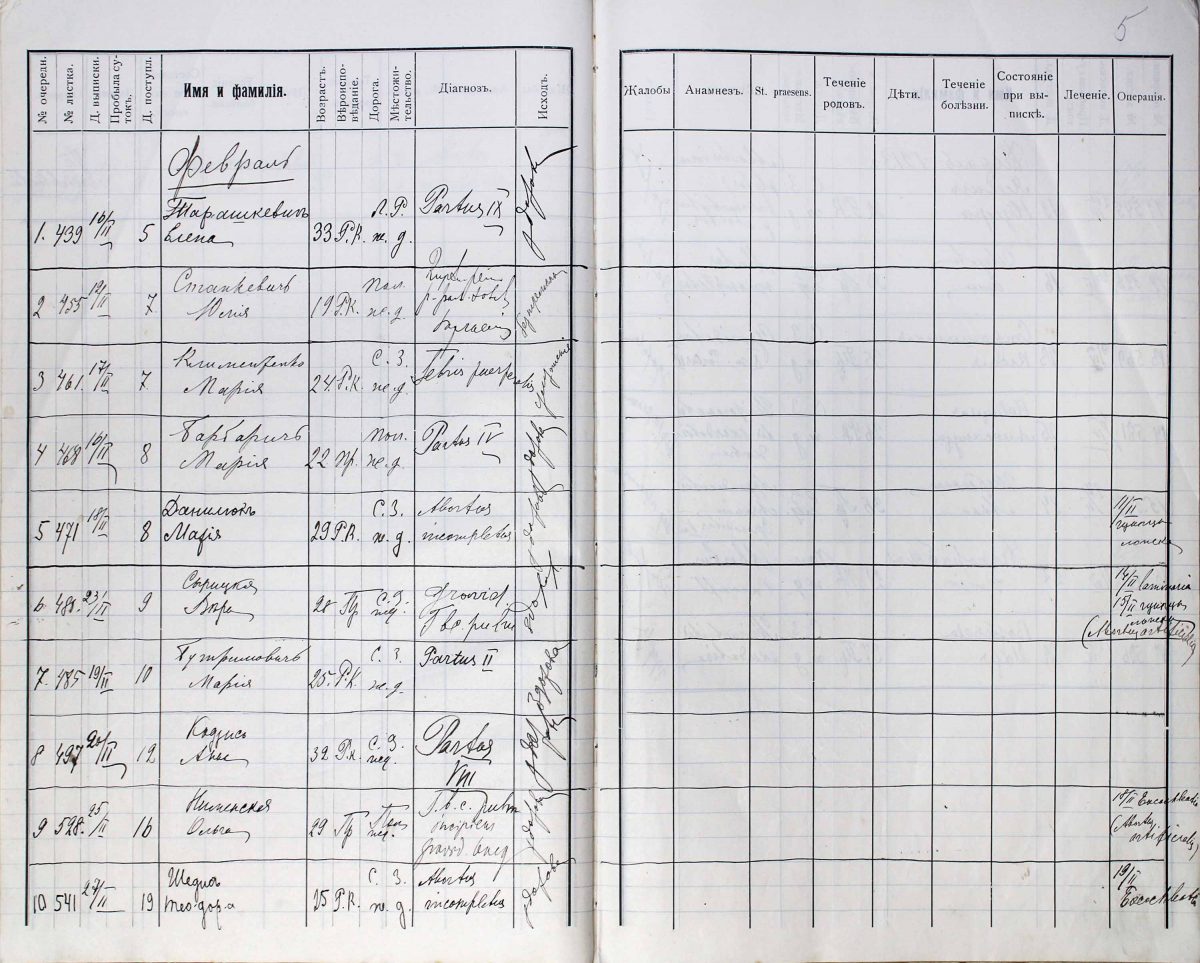 5
№ очереди. № листка. Д. выписки. Пробыла сутокъ. Д. поступл. Имя и фамилія. Возрастъ. Вѣроисповѣданіе. Дорога. Мѣстожительство. Діагнозъ. Исходъ.
Жалобы Анамнезъ. St. praesens. Теченіе родовъ. Дѣти. Теченіе болѣзни. Состояніе при выпискѣ. Леченіе. Операція.
Февраль
1. 439 16/II 5 Тарашкевичъ Елена 33 Р.К. Л.Р. ж.д. Partus IX здорова
2 455 12/II 7 Станкевичъ Юлія 19 Р.К. Пол. ж.д.
3 461. 17/II 7 Марія 24 Р.К. С.З. ж.д. Febris puerperalis
4 468 16/II 8 Барбаричъ Марія 22 Пр. Пол. ж.д. Partus IV здорова
5 471 18/II 8 Данилюкъ Марія 29 Р.К. С.З. ж.д. Abortus incompletus здорова 11/II щипцы
6 488. 23/II 9 Сырицкая Вѣра 28 Пр С.З. жд. Gravid Tbc. pulm 14/II laminaria 15/II щипцы (Abortus artificialis)
7. 485 19/II 10 Бутримовичъ Марія 25. Р.К. С.З. ж.д. Partus II здорова
8 497 20/II 12 Анна 32 Р.К. С.З. жд. Partus VIII здорова
9 528. 25/II 16 Ольга 29 Пр Пол жд. Tb.c. pulm incipiens здорова 18/II (Abortus artificialis)
10 541 27/II 19 Теодора 25 Р.К. С.З. ж.д. Abortus incompletus здорова 19/II